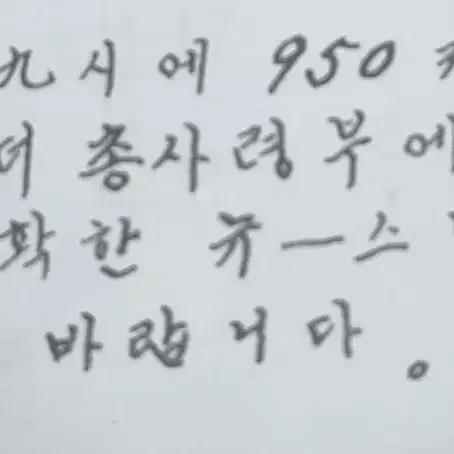 九시에 950
더 총사령부에
확한 뉴—스
바랍니다。